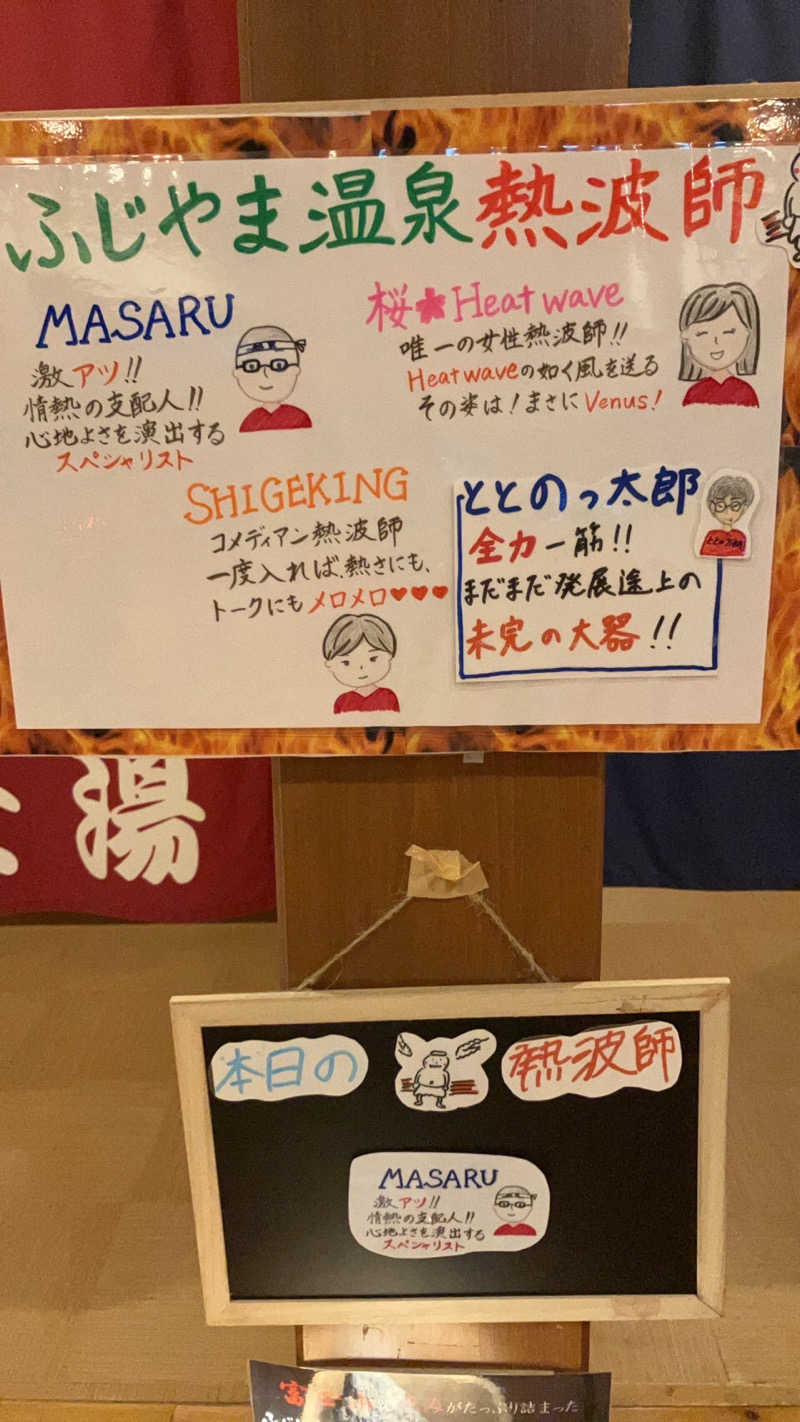 ふじやま温泉熱波師
MASARU
激アツ!!
情熱の支配人!!
心地よさを演出する
スペシャリスト
桜★Heat wave
唯一の女性熱波師!!
Heatwaveの如く風を送る
その姿は!まさにVenus!
SHIGEKING
コメディアン熱波師
一度入れば、熱さにも、
トークにもメロメロ♥♥♥
ととのっ太郎
全力一筋!!
まだまだ発展途上の
未完の大器!!
湯
本日の 熱波師
MASARU
激アツ!!
情熱の支配人!!
心地よさを演出する
スペシャリスト
がたっぷり詰まった